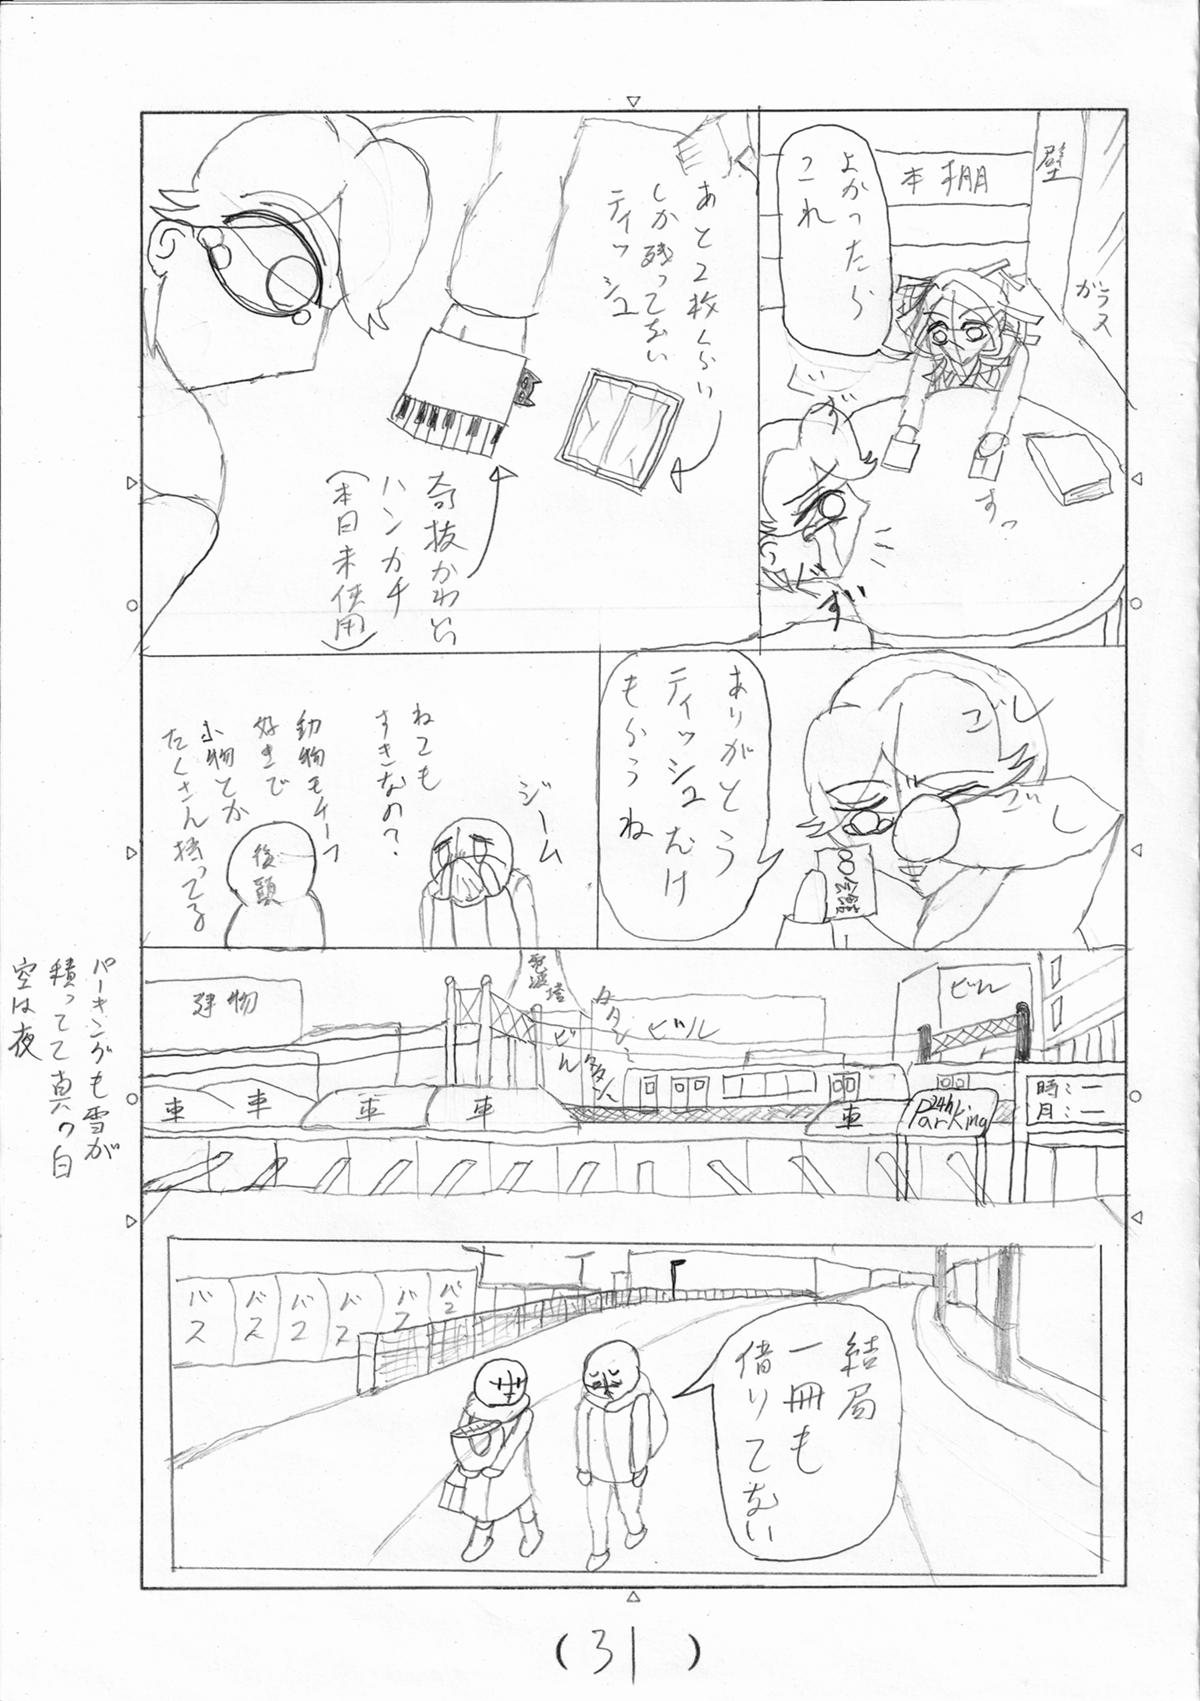 壁
本棚
ガラス
よかったら
これ
ずず
すっ
ずず
あと2枚くらい
しか残ってない
ティッシュ
奇抜かわいい
ハンカチ
(本日未使用)
ゴシ
ゴシ
ありがとう
ティッシュだけ
もらうね
ジーム
ねこも
すきなの?
動物モチーフ
好きで
小物とか
たくさん持ってる
後頭
パーキングも雪が
積ってて真っ白
空は夜
建物
電波塔
ビル
ビル
ビル
車
車
車
車
車
24h
Parking
時:ー
月:ー
バス
バス
バス
バス
バス
バス
結局
一冊も
借りてない
(31)